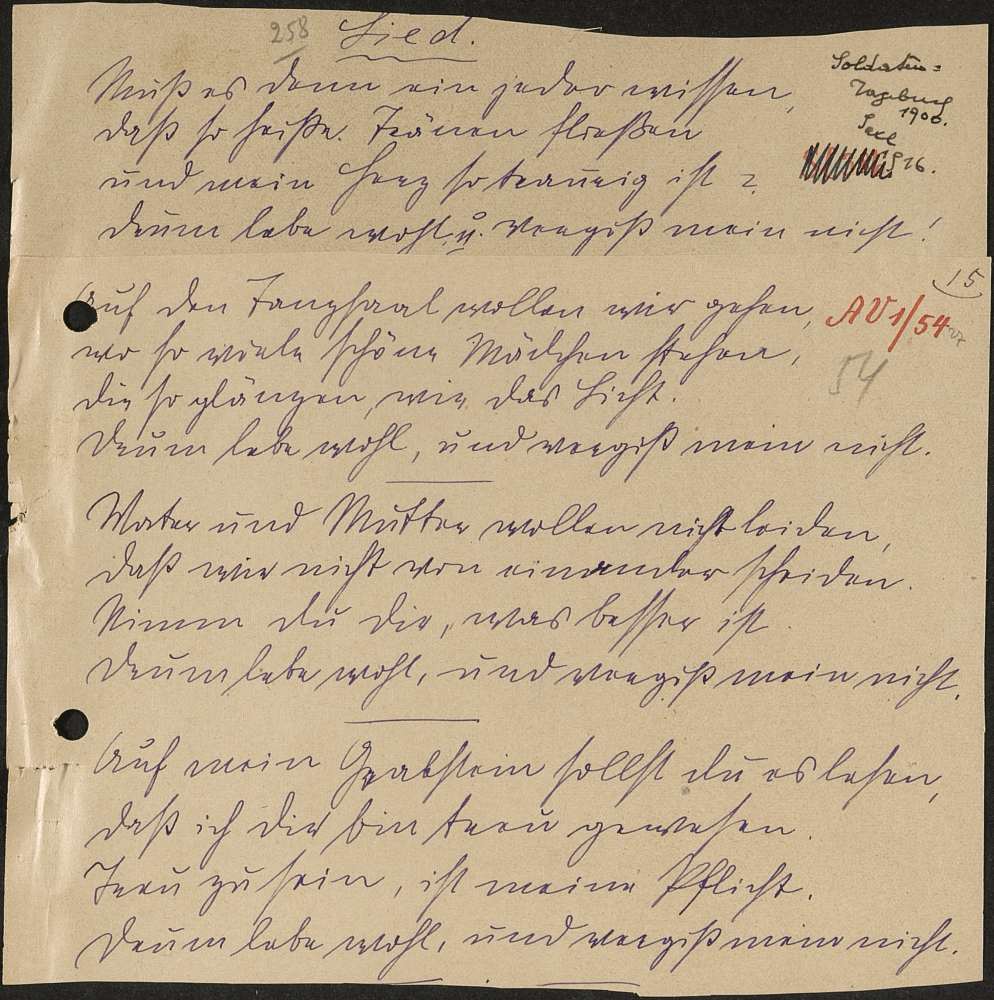 258 Lied.
Soldaten=
Tagebuch
1900.
S 26.
Muß es denn ein jeder wissen,
daß so heiße Tränen fließen
und mein Herz so traurig ist?
Drum lebe wohl, u. vergiß mein nicht!
15
Auf den Tanzsaal wollen wir gehen,
AV 1/54
wo so viele schöne Mädchen stehen,
54
die so glänzen, wie das Licht.
Drum lebe wohl, und vergiß mein nicht.
Vater und Mutter wollen nicht leiden,
daß wir nicht von einander scheiden.
Nimm du dir, was besser ist.
Drum lebe wohl, und vergiß mein nicht.
Auf mein Grabstein sollst du es lesen,
daß ich dir bin treu gewesen.
Treu zu sein, ist meine Pflicht.
Drum lebe wohl, und vergiß mein nicht.